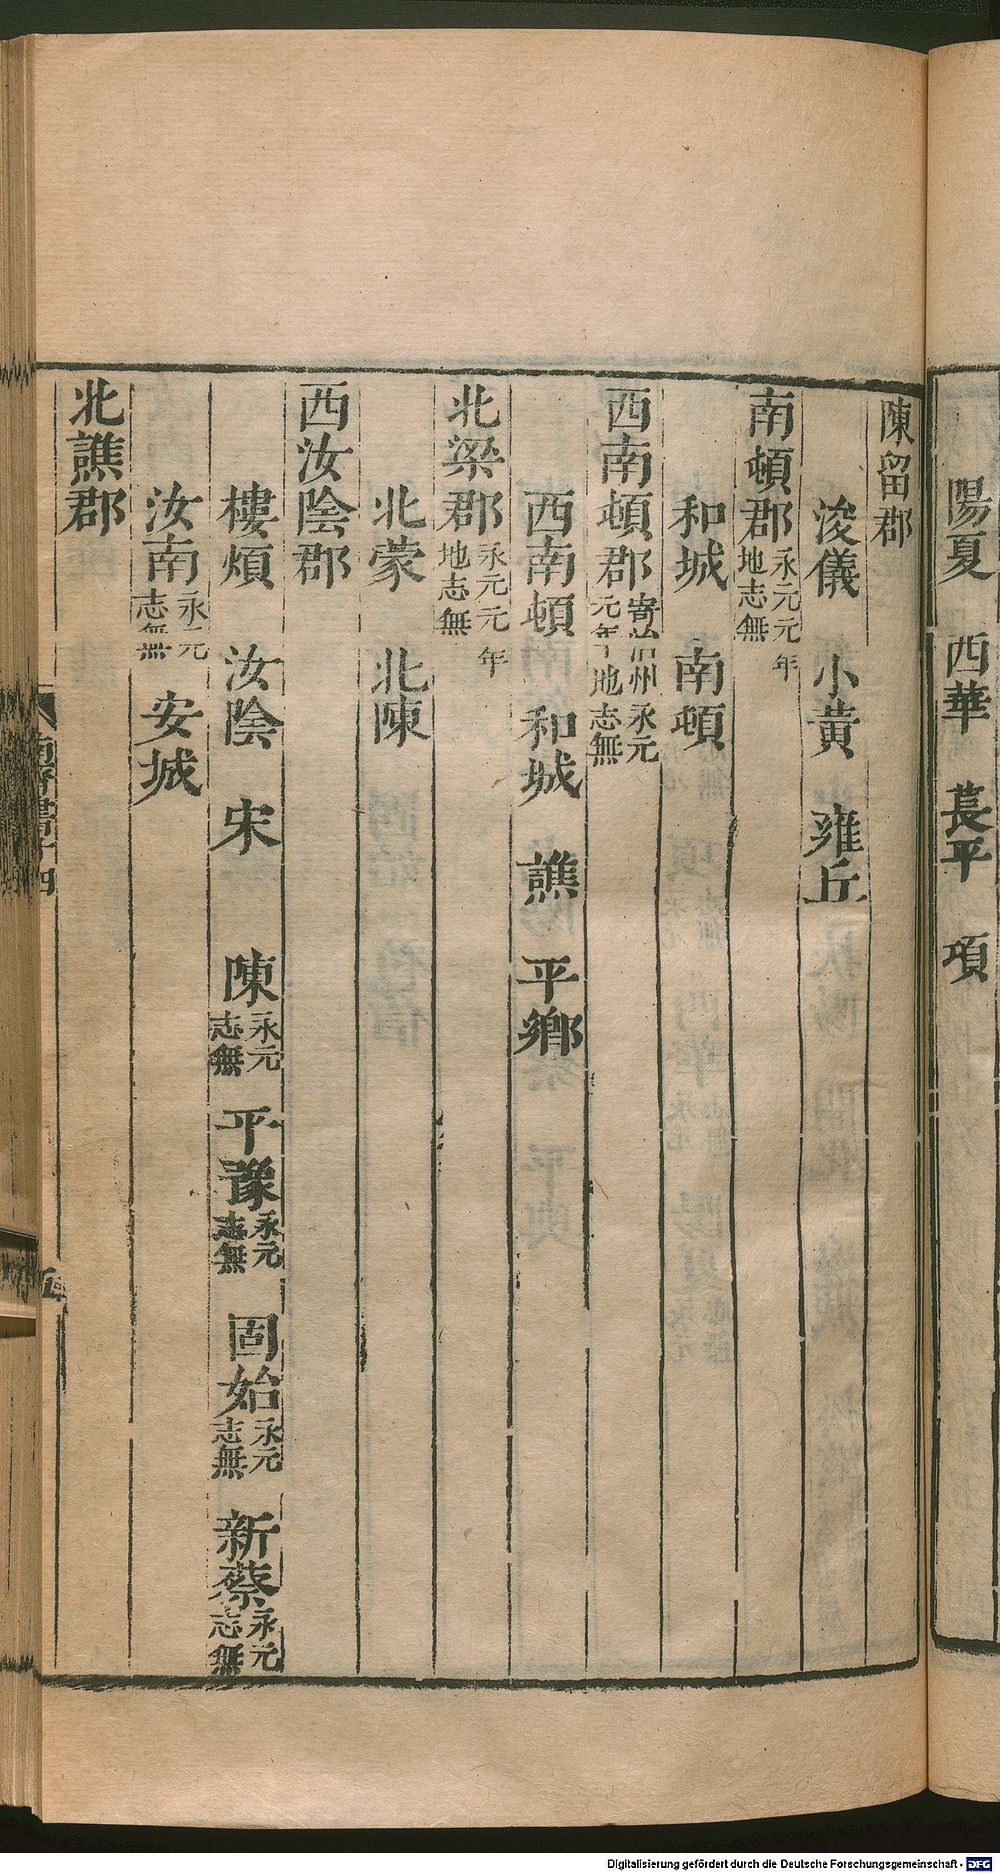 陽夏　西華　萇平　項
陳留郡
浚儀　小黃　雍丘
南頓郡永元元年地志無
和城　南頓
西南頓郡寄治州永元元年地志無
西南頓　和城　譙　平鄉
北梁郡永元元年地志無
北蒙　北陳
西汝陰郡
樓煩　汝陰　宋　陳永元志無　平豫永元志無　固始永元志無　新蔡永元志無
汝南永元志無　安城
北譙郡
南齊書十四
五
Digitalisierung gefördert durch die Deutsche Forschungsgemeinschaft - DFG